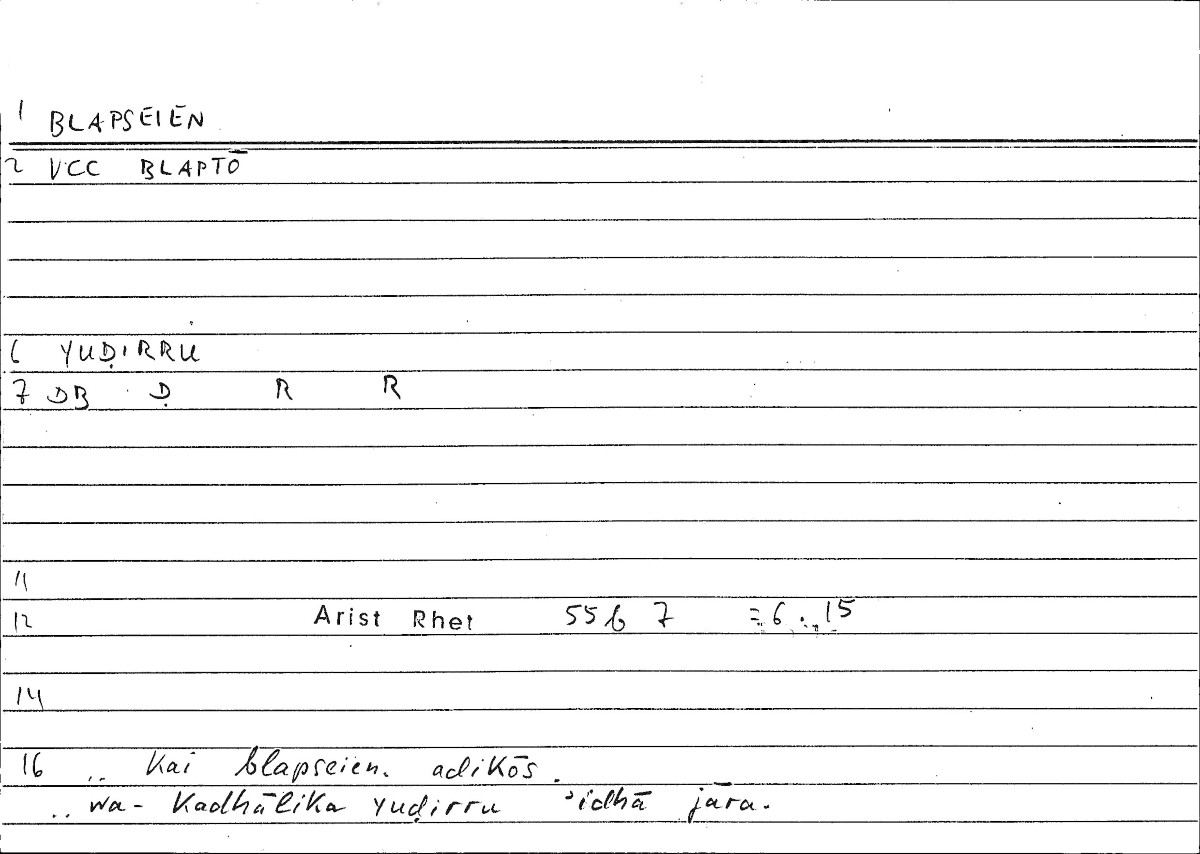 1 BLAPSEIEN
2 VCC BLAPTŌ
6 YUḌIRRU
7 DB Ḍ R R
11
12 Arist Rhet 55b 7 = 6 .,15
14
16 .. Kai blapseien. adikōs.
.. wa- Kadhālika yuḍirru ʾidhā jāra.